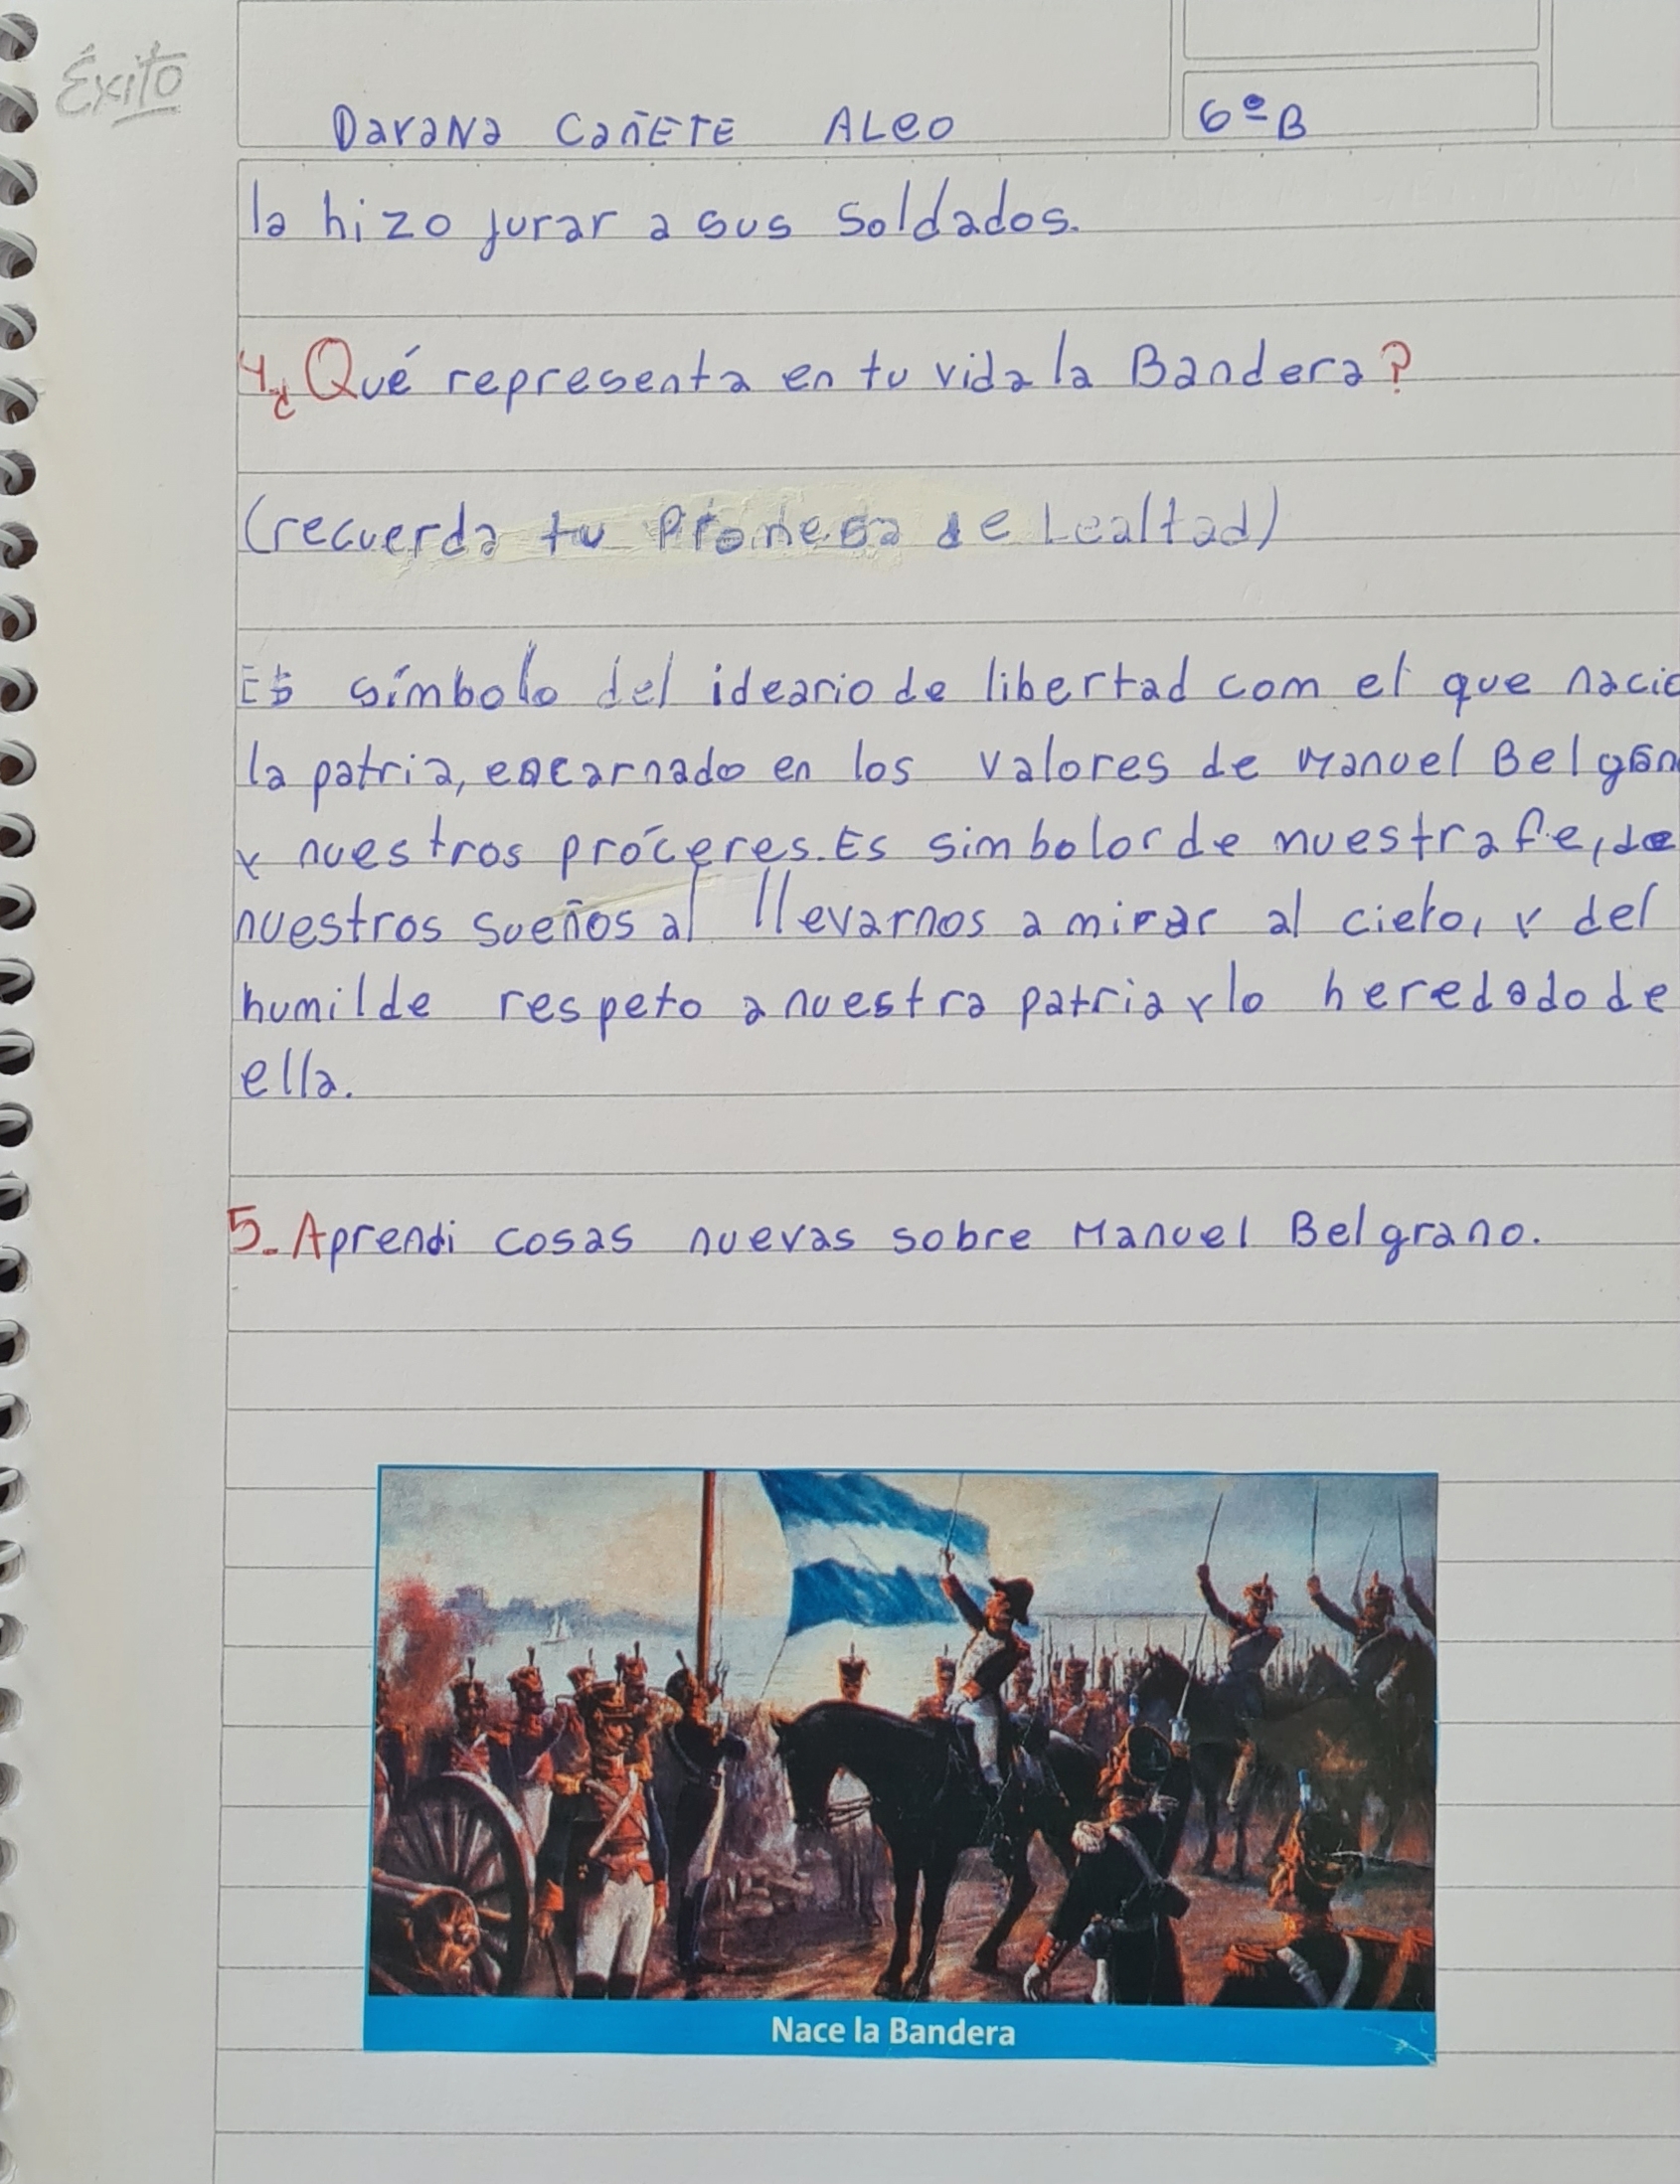 Éxito
Dayana Cañete Aleo
6º B
la hizo jurar a sus soldados.
4. ¿Qué representa en tu vida la Bandera?
(recuerda tu Promesa de Lealtad)
Es símbolo del ideario de libertad com el que nacio
la patria, encarnado en los valores de Manuel Belgran
y nuestros próceres. Es simbolor de nuestra fe, de
nuestros sueños al llevarnos a mirar al cielo, y del
humilde respeto a nuestra patria y lo heredado de
ella.
5. Aprendi cosas nuevas sobre Manuel Belgrano.
Nace la Bandera